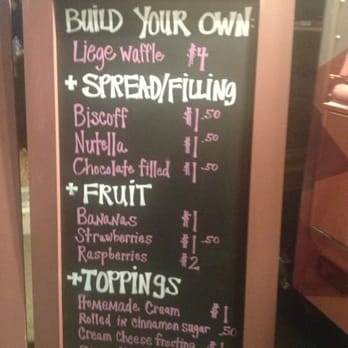 BUILD YOUR OWN:
Liege Waffle $4
+ SPREAD/FILLING
Biscoff $1.50
Nutella $1.50
Chocolate filled $1.50
+ FRUIT
Bananas $1
Strawberries $1.50
Raspberries $2
+TOPPINGS
Homemade Cream $1
Rolled in cinnamon sugar .50
Cream Cheese frosting $1